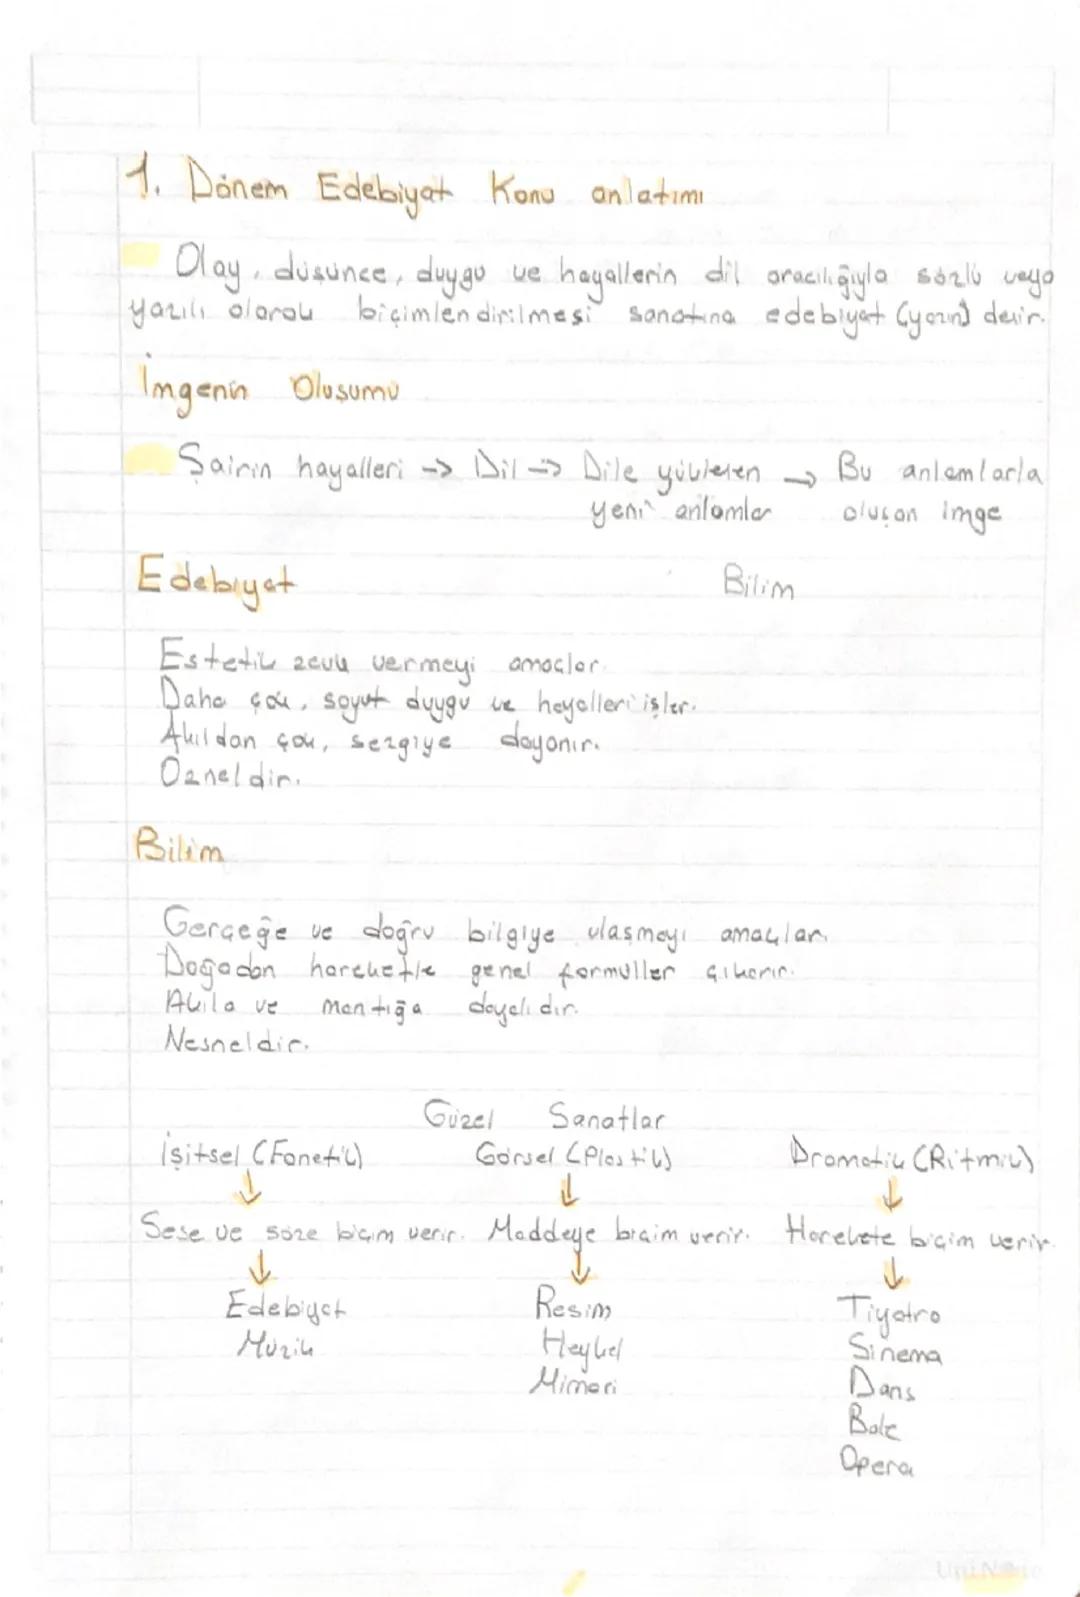 1. Dönem Edebiyat Konu anlatımı
Olay, düşünce, duygu ve hayallerin dil aracılığıyla sözlü veya
yazılı olarak biçimlendirilmesi sanatına edebiyat (yazın) denir.
İmgenin Oluşumu
Şairin hayalleri -> Dil -> Dile yüklenen -> Bu anlamlarla
yeni anlamlar oluşan imge
Edebiyat Bilim
Estetik zevk vermeyi amaçlar.
Daha çok, soyut duygu ve hayalleri işler.
Akıldan çok, sezgiye dayanır.
Özneldir.
Bilim
Gerçeğe ve doğru bilgiye ulaşmayı amaçlar.
Doğadan hareketle genel formüller çıkarır.
Akıla ve mantığa dayalıdır.
Nesneldir.
Güzel Sanatlar
İşitsel (Fonetik) Görsel (Plastik) Dramatik (Ritmik)
↓ ↓ ↓
Sese ve söze biçim verir. Maddeye biçim verir. Harekete biçim verir.
↓ ↓ ↓
Edebiyat Resim Tiyatro
Müzik Heykel Sinema
Mimari Dans
Bale
Opera
UniNote